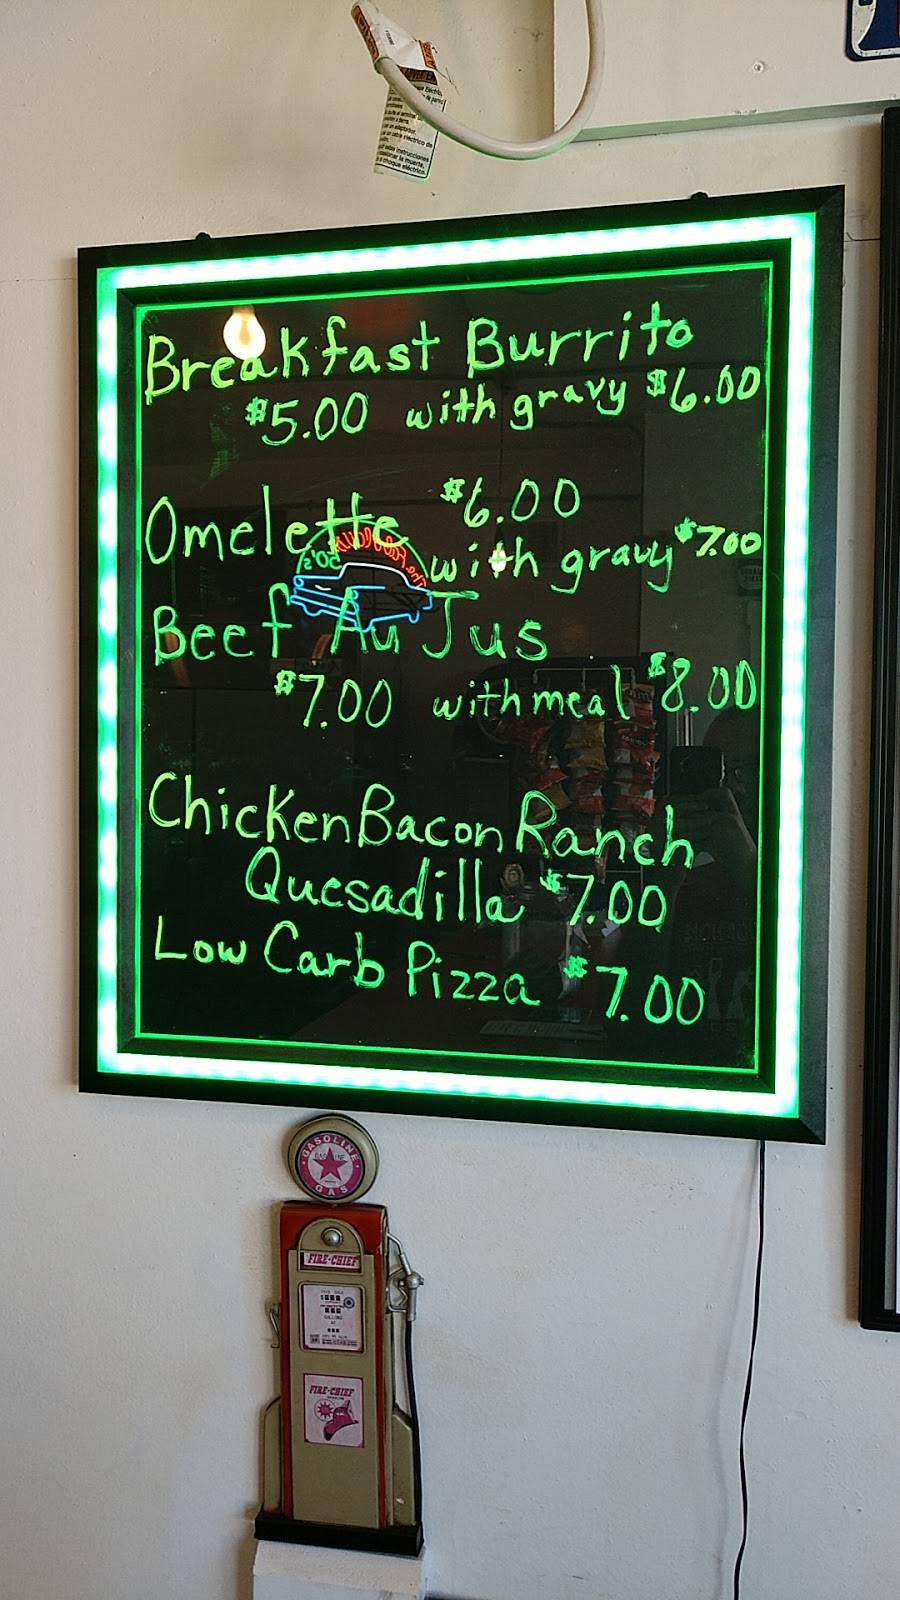 Breakfast Burrito
$5.00 with gravy $6.00
Omelette $6.00
with gravy $7.00
Beef Au Jus
$7.00 with meal $8.00
Chicken Bacon Ranch
Quesadilla $7.00
Low Carb Pizza $7.00
GASOLINE
GAS
FIRE-CHIEF
FIRE-CHIEF